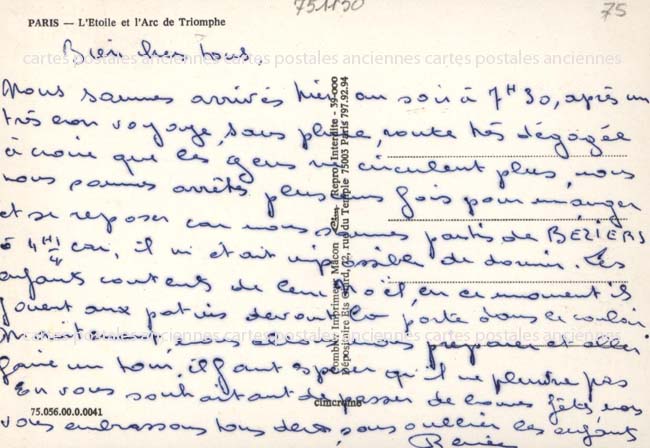 751130
75
PARIS — L'Etoile et l'Arc de Triomphe
Bien chers tous,
cartes postales anciennes cartes postales anciennes cartes postales anciennes
Nous sommes arrivés hier au soir à 7H30, après un
très bon voyage, sans pluie, route très dégagée
à croire que les gens ne circulent plus, nous
nous sommes arrêtés plusieurs fois pour manger
et se reposer car nous sommes partis de BEZIERS
à 4H1/4 car, il m'était impossible de dormir. Les
enfants contents de leur Noël, en ce moment ils
jouent aux patins devant la porte dans le couloir
cartes postales anciennes cartes postales anciennes cartes postales anciennes
nous allons nous préparer et aller
faire un tour, il faut espérer qu'il ne pleuvra pas
En vous souhaitant de passer de bonnes fêtes, nous
vous embrassons tous deux sans oublier les enfants
75.056.00.0.0041
Combier Imprimeur Macon Cim Repro. Interdite - 39-000
Dépositaire Ets Guard, 62, rue du Temple 75003 Paris 797.92.94
cimcrome